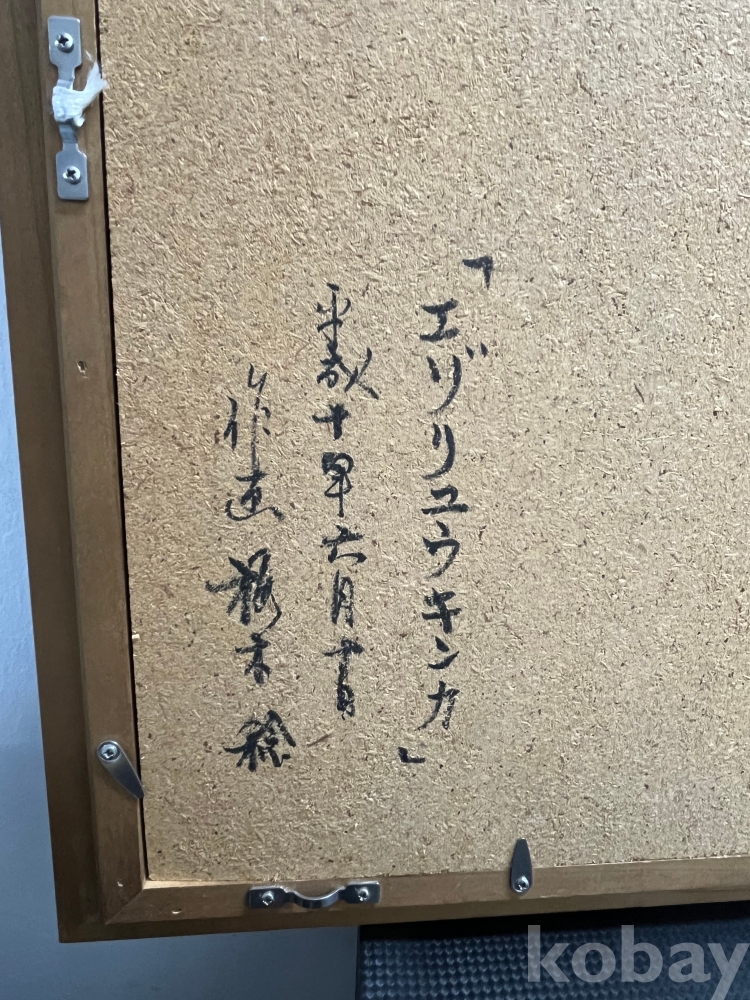 「エゾリュウキンカ」
平成十年六月十日
作画 木 稔
kobay